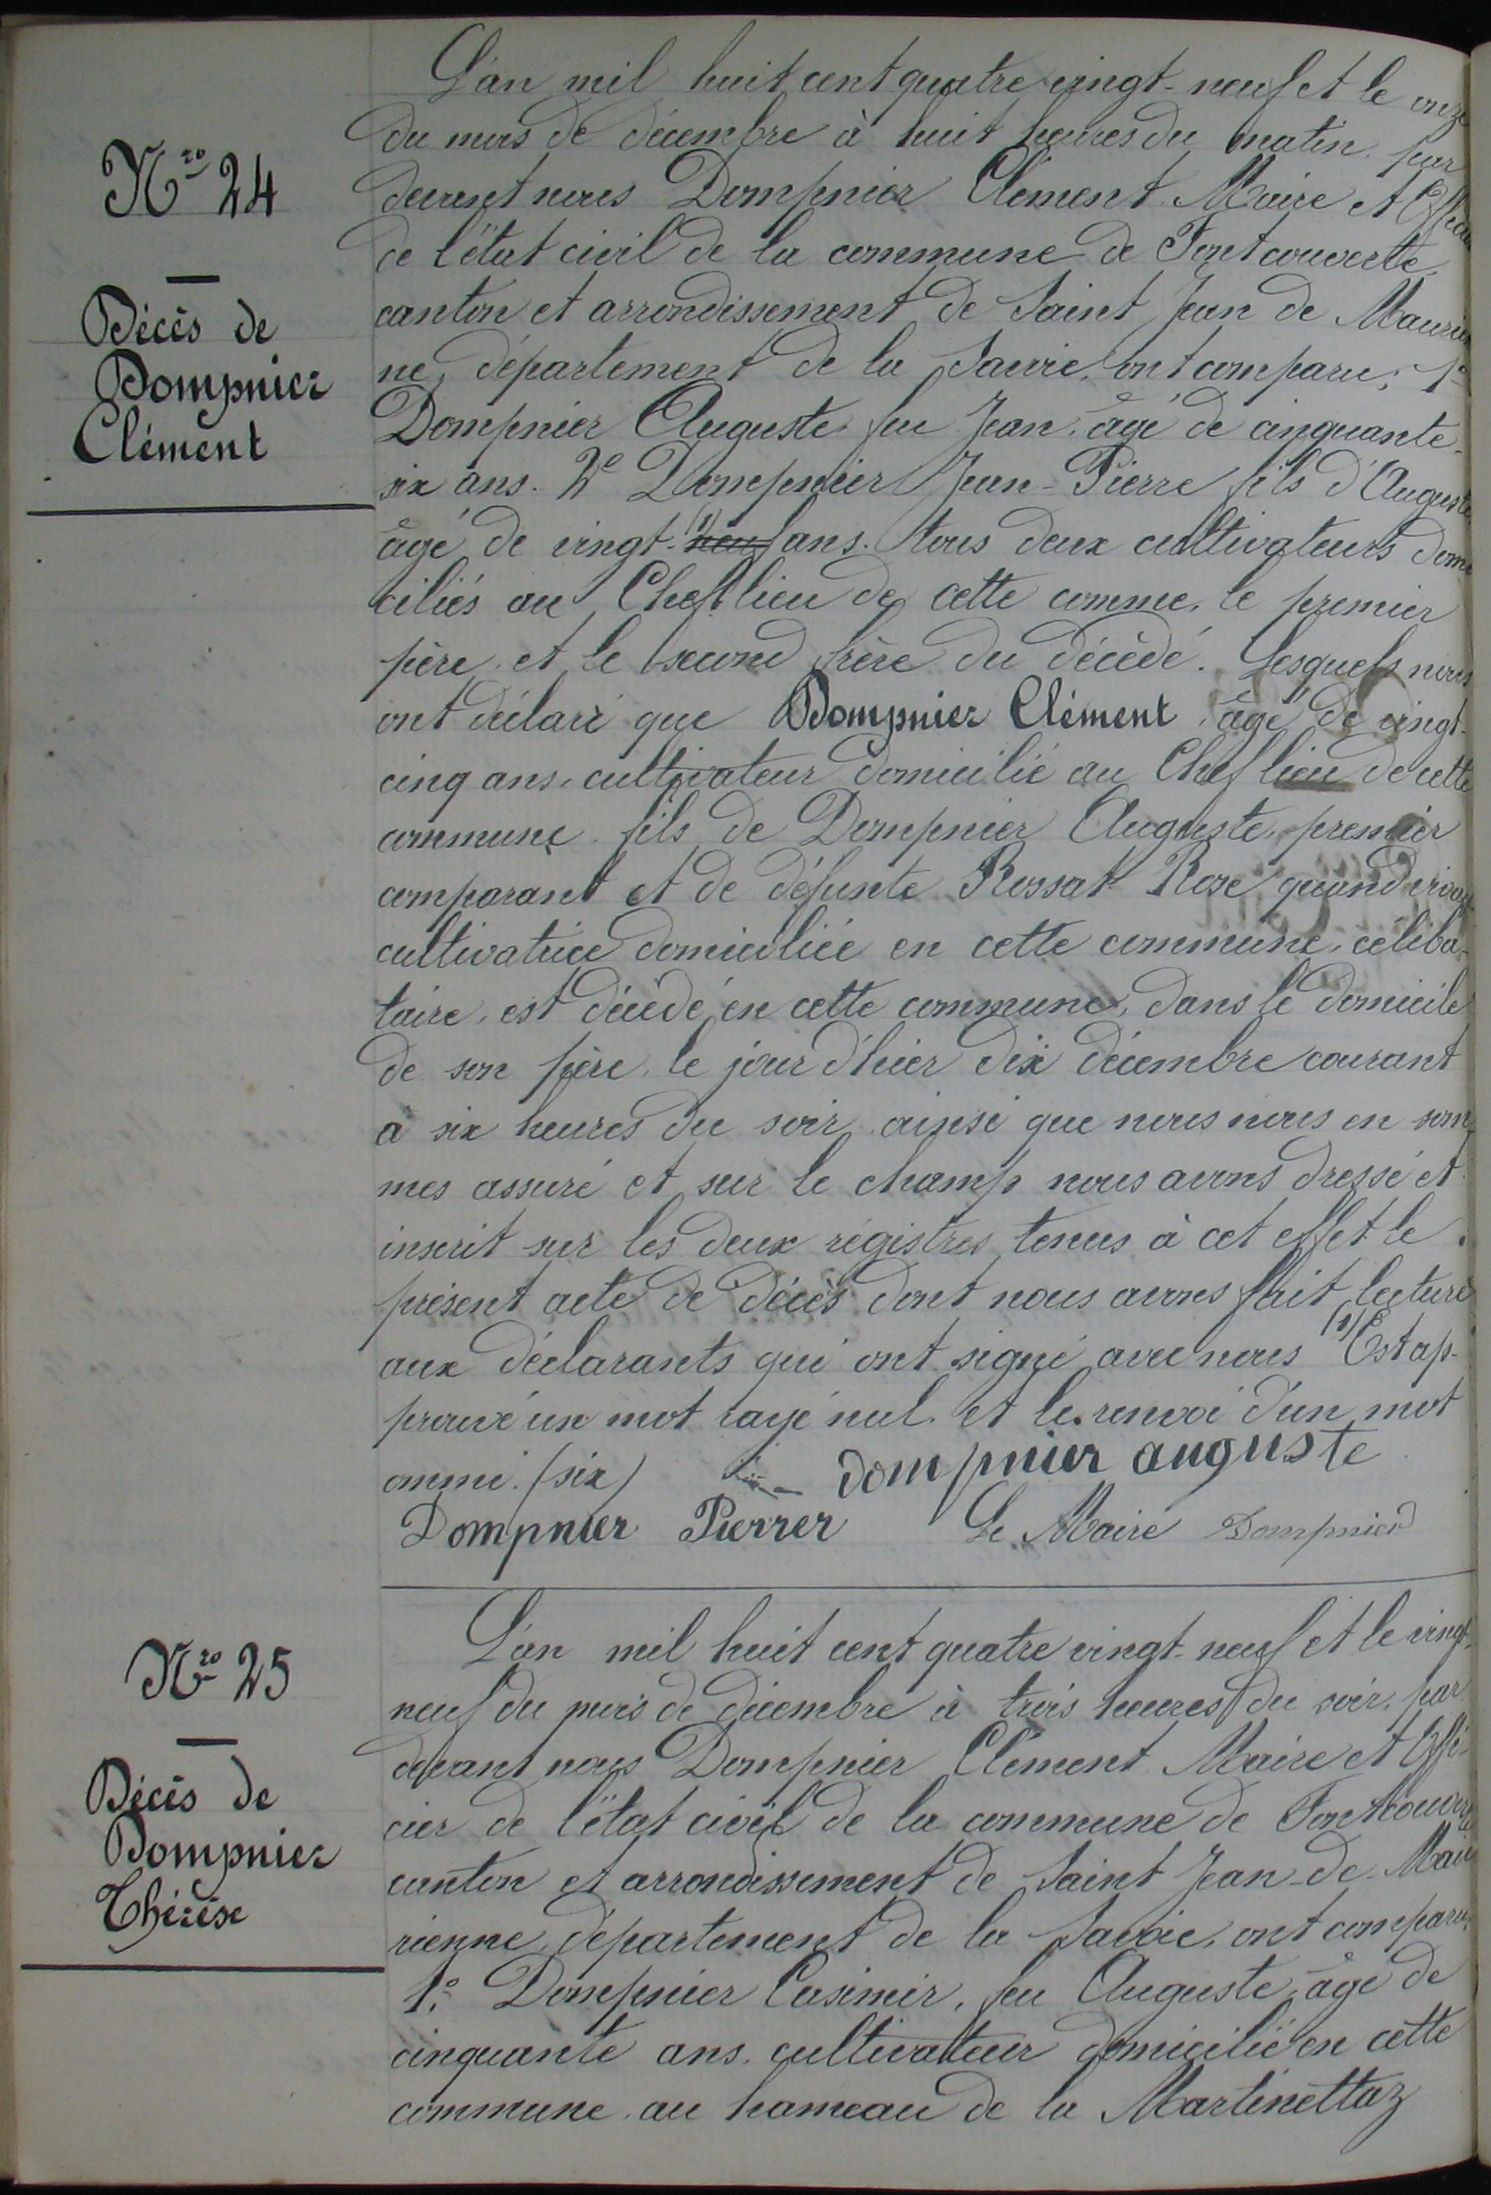 Nro 24
Décès de
Dompnier
Clément
L'an mil huit cent quatre vingt-neuf et le onze
du mois de décembre à huit heures du matin, par
devant nous Dompnier Clément Maire et Officier
de l'état civil de la commune de Fontcouverte,
canton et arrondissement de Saint Jean de Maurien
ne, département de la Savoie, ont comparu; 1º
Dompnier Auguste feu Jean, âgé de cinquante-
six ans. 2º Dompnier Jean-Pierre fils d'Auguste
âgé de vingt-(1) neuf ans. tous deux cultivateurs domi
ciliés au Chef lieu de cette comme, le premier
père et le second frère du décédé. Lesquels nous
ont déclaré que Dompnier Clément, âgé de vingt-
cinq ans, cultivateur domicilié au Chef lieu de cette
commune fils de Dompnier Auguste, premier
comparant et de défunte Rossat Rose quand vivait
cultivatrice domiciliée en cette commune, céliba-
taire, est décédé en cette commune, dans le domicile
de son père, le jour d'hier dix décembre courant
à six heures du soir, ainsi que nous nous en som
mes assuré et sur le champ nous avons dressé et
inscrit sur les deux régistres tenus à cet effet le
présent acte de décès dont nous avons fait lecture
aux déclarants qui ont signé avec nous (1) Est ap-
prouvé un mot rayé nul et le renvoi d'un mot
ommi. (six) dompnier auguste
Dompnier Pierrer Le Maire Dompnier
Nro 25
Décès de
Dompnier
Thérèse
L'an mil huit cent quatre vingt-neuf et le vingt-
neuf du mois de décembre à trois heures du soir, par
devant nous Dompnier Clément Maire et Offi-
cier de l'état civil de la commune de Fontcouverte
canton et arrondissement de Saint Jean-de-Mau
rienne, département de la Savoie, ont comparu,
1º Dompnier Casimir, feu Auguste, âgé de
cinquante ans, cultivateur domicilié en cette
commune, au hameau de la Martinettaz